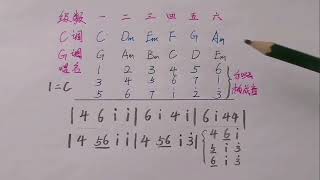 级数 一 二 三 四 五 六
C调 C Dm Em F G Am
G调 G Am Bm C D Em
唱名 1 2 3 4 5 6
3 4 5 6 7 1
1=C 5 6 7 i 2 3
| 4 6 i i | 6 i 4 i | 6 i 4 4 |
| 4 56 i i | 4 56 i 3 | 4 6 i
5 i 3
6 i 3